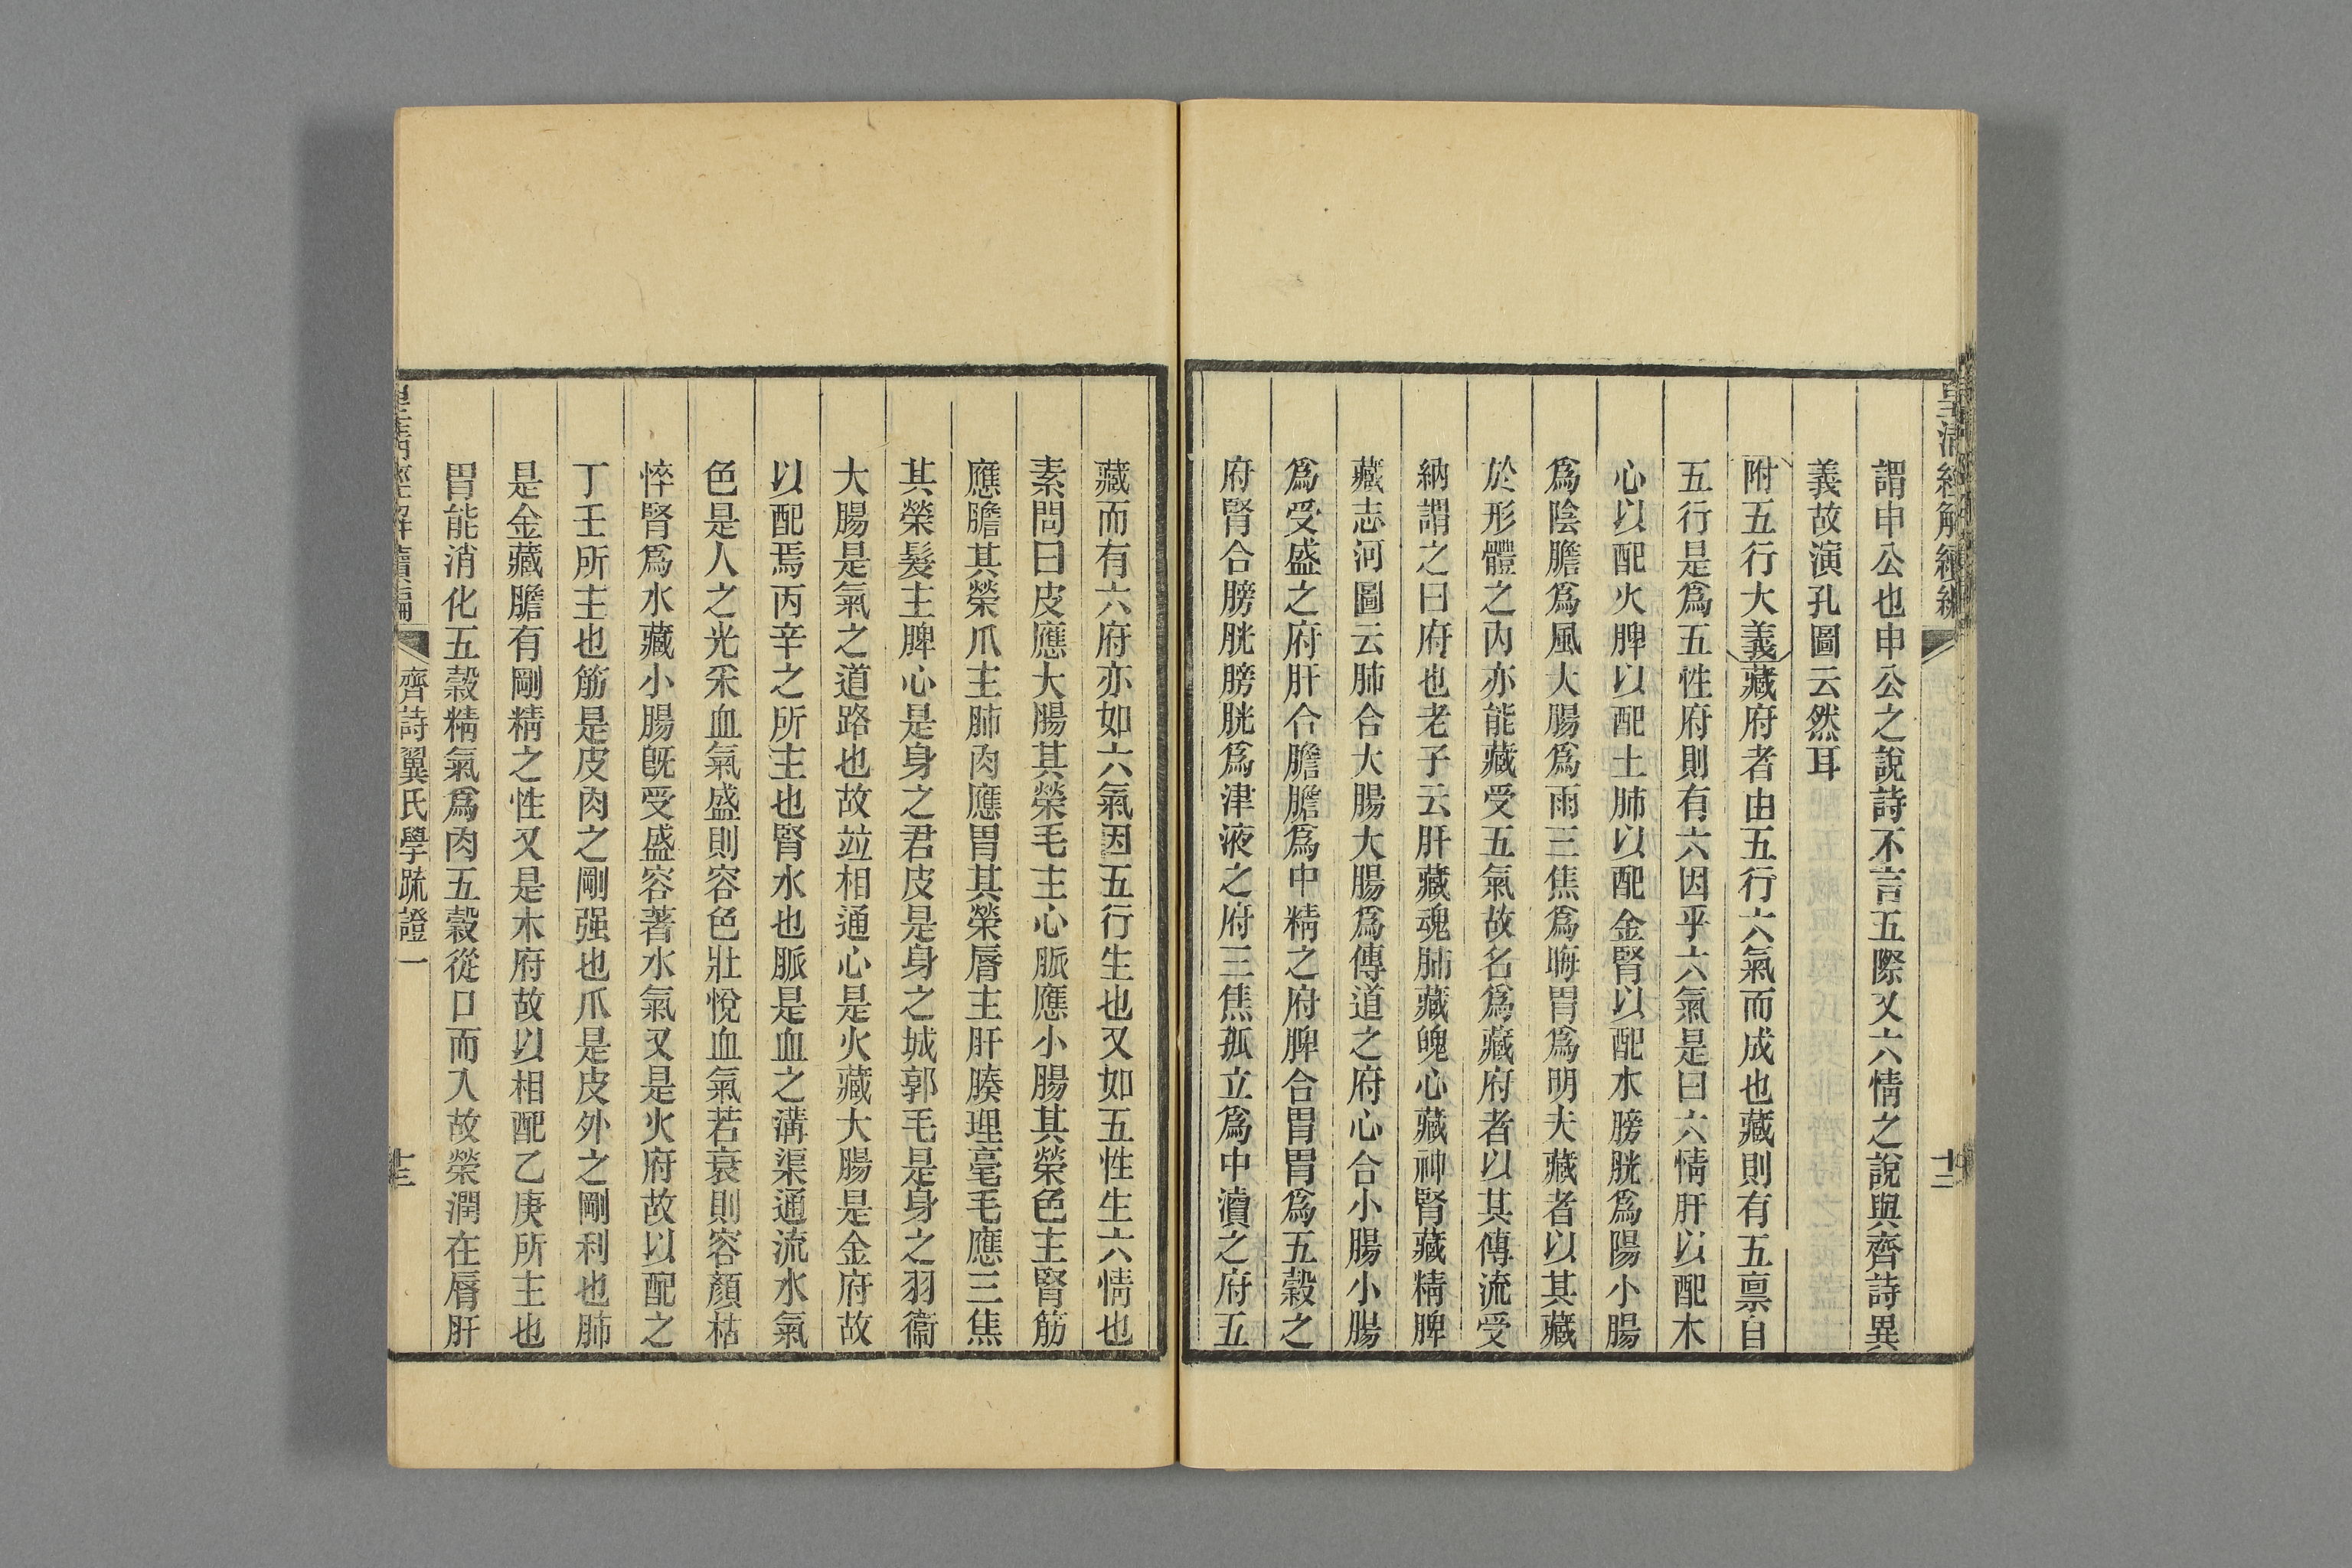 皇清經解續編
十二
謂申公也申公之說詩不言五際又六情之說與齊詩異
義故演孔圖云然耳
附五行大義藏府者由五行六氣而成也藏則有五禀自
五行是爲五性府則有六因乎六氣是曰六情肝以配木
心以配火脾以配土肺以配金腎以配水膀胱爲陽小腸
爲陰膽爲風大腸爲雨三焦爲晦胃爲明夫藏者以其藏
於形體之內亦能藏受五氣故名爲藏府者以其傳流受
納謂之曰府也老子云肝藏魂肺藏魄心藏神腎藏精脾
藏志河圖云肺合大腸大腸爲傳道之府心合小腸小腸
爲受盛之府肝合膽膽爲中精之府脾合胃胃爲五穀之
府腎合膀胱膀胱爲津液之府三焦孤立爲中瀆之府五
藏而有六府亦如六氣因五行生也又如五性生六情也
素問曰皮應大腸其榮毛主心脈應小腸其榮色主腎筋
應膽其榮爪主肺肉應胃其榮脣主肝腠理毫毛應三焦
其榮髮主脾心是身之君皮是身之城郭毛是身之羽衞
大腸是氣之道路也故竝相通心是火藏大腸是金府故
以配焉丙辛之所主也腎水也脈是血之溝渠通流水氣
色是人之光采血氣盛則容色壯悅血氣若衰則容顏枯
悴腎爲水藏小腸旣受盛容著水氣又是火府故以配之
丁壬所主也筋是皮肉之剛强也爪是皮外之剛利也肺
是金藏膽有剛精之性又是木府故以相配乙庚所主也
胃能消化五穀精氣爲肉五穀從口而入故榮潤在脣肝
皇淸經解續編
齊詩翼氏學疏證一
十三